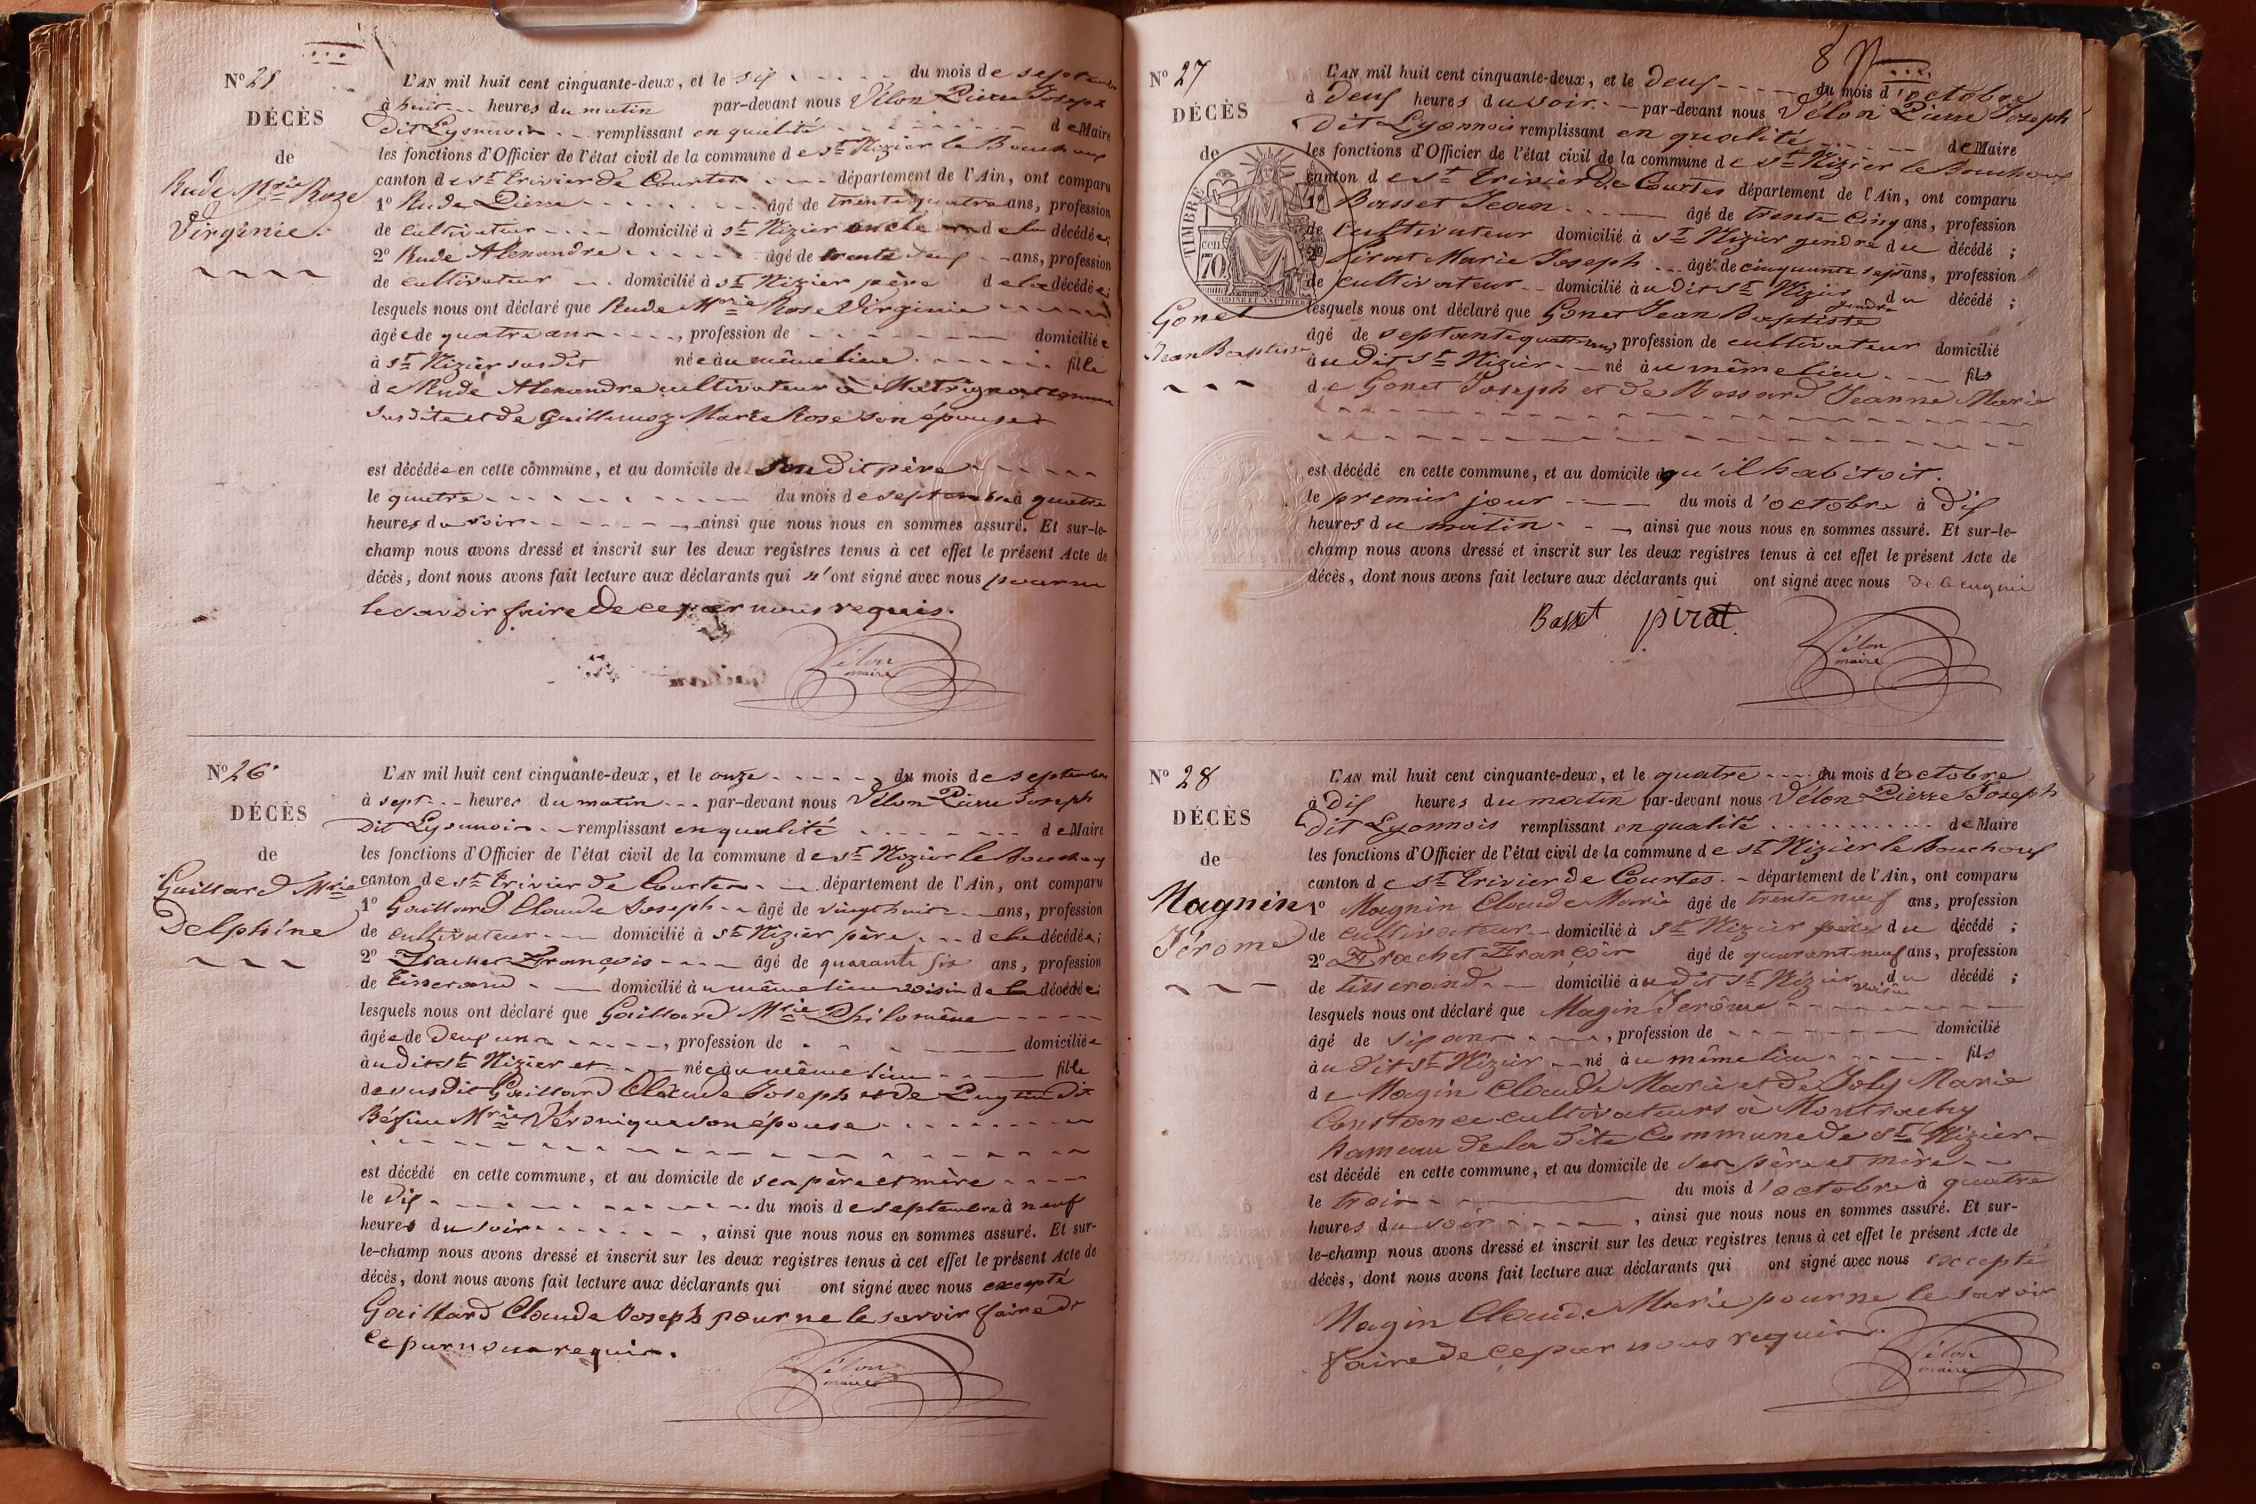 N° 25
DÉCÈS
de
Rude Mrie Rose
Virginie.
L'AN mil huit cent cinquante-deux, et le six du mois de septembre
à huit heures du matin par-devant nous Vélon Pierre Joseph
dit Lyonnois remplissant en qualité de Maire
les fonctions d'Officier de l'état civil de la commune de St Nizier le Bouchoux
canton de St Trivier de Courtes département de l'Ain, ont comparu
1° Rude Pierre âgé de trente quatre ans, profession
de cultivateur domicilié à St Nizier oncle de la décédée;
2° Rude Alexandre âgé de trente deux ans, profession
de cultivateur domicilié à St Nizier père de la décédée;
lesquels nous ont déclaré que Rude Mrie Rose Virginie
âgée de quatre ans, profession de domiciliée
à St Nizier susdit née au même lieu fille
de Rude Alexandre cultivateur à commune
susdite et de Guillemoz Marie Rose son épouse
est décédée en cette commune, et au domicile de son dit père
le quatre du mois de septembre à quatre
heures du soir, ainsi que nous nous en sommes assuré. Et sur-le-
champ nous avons dressé et inscrit sur les deux registres tenus à cet effet le présent Acte de
décès, dont nous avons fait lecture aux déclarants qui n'ont signé avec nous pour ne
le savoir faire de ce par nous requis.
Vélon
maire
N° 26
DÉCÈS
de
Gaillard Mrie
Delphine
L'AN mil huit cent cinquante-deux, et le onze du mois de septembre
à sept heures du matin par-devant nous Vélon Pierre Joseph
dit Lyonnois remplissant en qualité de Maire
les fonctions d'Officier de l'état civil de la commune de St Nizier le Bouchoux
canton de St Trivier de Courtes département de l'Ain, ont comparu
1° Gaillard Claude Joseph âgé de vingt huit ans, profession
de cultivateur domicilié à St Nizier père de la décédée;
2° François âgé de quarante six ans, profession
de tisserand domicilié au même lieu voisin de la décédée;
lesquels nous ont déclaré que Gaillard Mrie Philomène
âgée de deux ans, profession de domiciliée
au dit St Nizier et née au même lieu fille
de susdit Gaillard Claude Joseph et de Puget dit
Mrie Véronique son épouse
est décédé en cette commune, et au domicile de ses père et mère
le dix du mois de septembre à neuf
heures du soir, ainsi que nous nous en sommes assuré. Et sur-
le-champ nous avons dressé et inscrit sur les deux registres tenus à cet effet le présent Acte de
décès, dont nous avons fait lecture aux déclarants qui ont signé avec nous excepté
Gaillard Claude Joseph pour ne le savoir faire de
ce par nous requis.
Vélon
maire
8
N° 27
DÉCÈS
de
TIMBRE
70
Gonet
Jean Baptiste
L'AN mil huit cent cinquante-deux, et le deux du mois d'octobre
à deux heures du soir par-devant nous Vélon Pierre Joseph
dit Lyonnois remplissant en qualité de Maire
les fonctions d'Officier de l'état civil de la commune de St Nizier le Bouchoux
canton de St Trivier de Courtes département de l'Ain, ont comparu
1° Basset Jean âgé de trente cinq ans, profession
de cultivateur domicilié à St Nizier gendre du décédé;
2° Pirat Marie Joseph âgé de cinquante sept ans, profession
de cultivateur domicilié au dit St Nizier gendre du décédé;
lesquels nous ont déclaré que Gonet Jean Baptiste
âgé de septante quatre ans, profession de cultivateur domicilié
au dit St Nizier né au même lieu fils
de Gonet Joseph et de Bossard Jeanne Marie
est décédé en cette commune, et au domicile qu'il habitoit.
le premier jour du mois d'octobre à dix
heures du matin, ainsi que nous nous en sommes assuré. Et sur-le-
champ nous avons dressé et inscrit sur les deux registres tenus à cet effet le présent Acte de
décès, dont nous avons fait lecture aux déclarants qui ont signé avec nous de ce requis
Basset pirat
Vélon
maire
N° 28
DÉCÈS
de
Magnin
Jérome
L'AN mil huit cent cinquante-deux, et le quatre du mois d'octobre
à dix heures du matin par-devant nous Vélon Pierre Joseph
dit Lyonnois remplissant en qualité de Maire
les fonctions d'Officier de l'état civil de la commune de St Nizier le Bouchoux
canton de St Trivier de Courtes département de l'Ain, ont comparu
1° Magnin Claude Marie âgé de trente neuf ans, profession
de cultivateur domicilié à St Nizier père du décédé;
2° Brachet François âgé de quarante neuf ans, profession
de tisserand domicilié au dit St Nizier voisin du décédé;
lesquels nous ont déclaré que Magin Jerôme
âgé de six ans, profession de domicilié
au dit St Nizier né au même lieu fils
de Magin Claude Marie et de Joly Marie
Constance cultivateurs à Montrachy
hameau de la dite Commune de St Nizier
est décédé en cette commune, et au domicile de ses père et mère
le trois du mois d'octobre à quatre
heures du soir, ainsi que nous nous en sommes assuré. Et sur-
le-champ nous avons dressé et inscrit sur les deux registres tenus à cet effet le présent Acte de
décès, dont nous avons fait lecture aux déclarants qui ont signé avec nous excepté
Magin Claude Marie pour ne le savoir
faire de ce par nous requis.
Vélon
maire